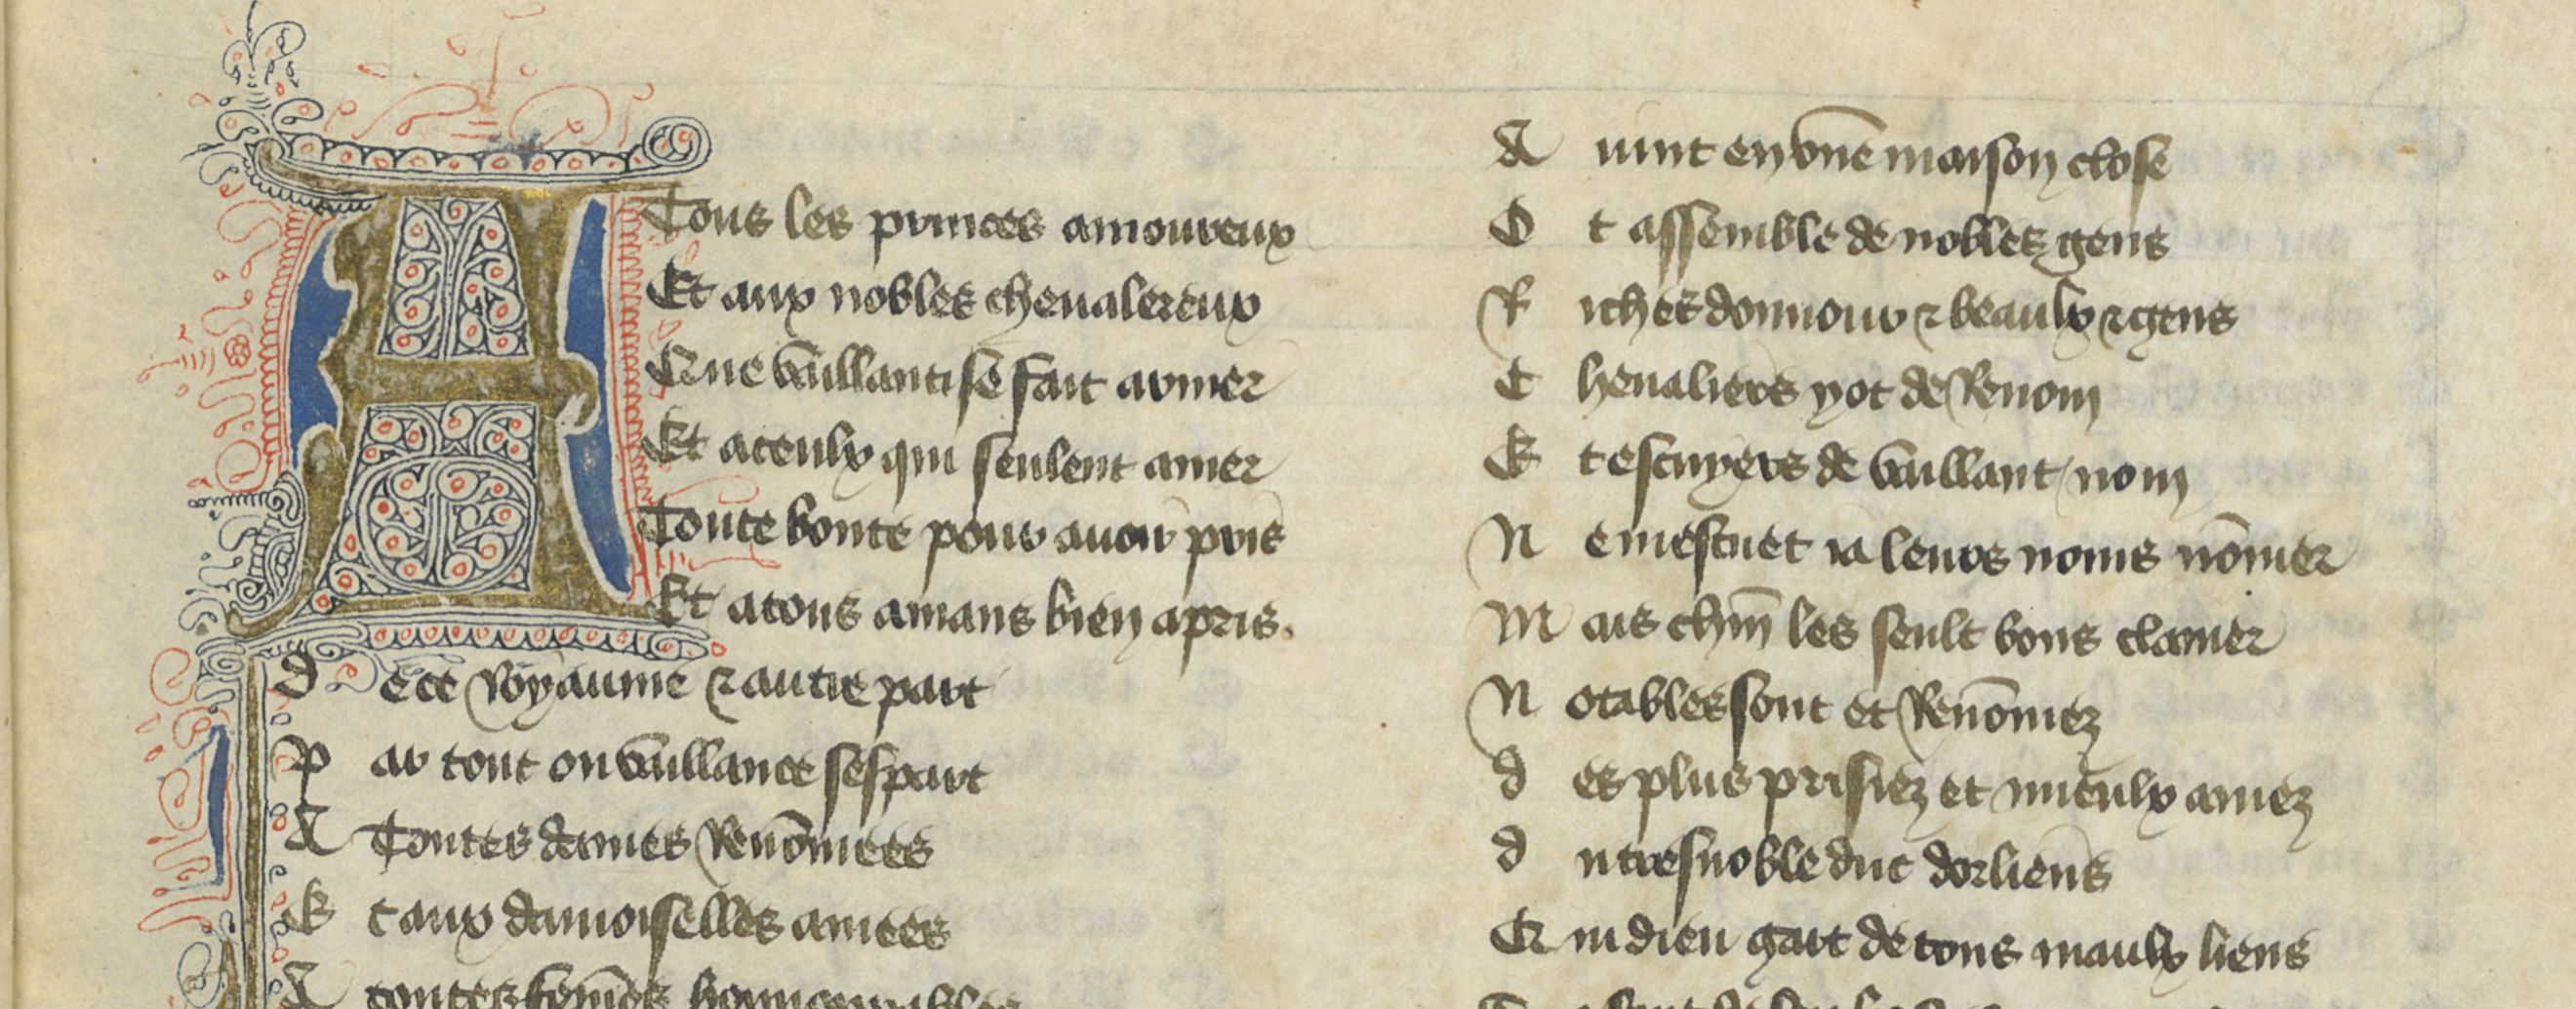 A Tous les princes amoureux
Et aux nobles cheualereux
Que vaillantise fait armer
Et a ceulx qui seulent amer
Toute bonte pour auoir pris
Et a tous amans bien apris.
De ce Royaume ⁊ autre part
Par tout ou vaillance sespart
A Toutes dames Renōmees
Et aux damoiselles amees
A toutes fem̄es honnourables
Auint en vne maison close
Et assemble de nobles gens
Riches donnour ⁊ beaulx ⁊ gens
Cheualiers y ot de Renom
Et escuyers de vaillant nom
Ne mestuet ia leurs noms nōmer
Mais chm̄ les seult bons clamer
Notables sont et Renōmez
Des plus prisiez et mieulx amez
Du tresnoble duc dorliens
Qui dieu gart de tous maulx liens